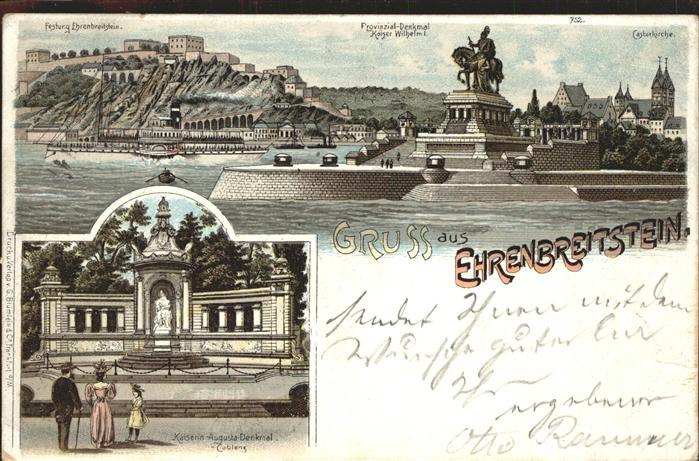 Festung Ehrenbreitstein.
Provinzial-Denkmal
Kaiser Wilhelm I.
752.
Castorkirche.
GRUSS aus
EHRENBREITSTEIN.
Druck u. Verlag v. G. Blümlein & Co. Frankfurt a/M.
sendet Ihnen mit dem
Wunsche guter
Ihr
ergebener
Otto
Kaiserin-Augusta-Denkmal
-Coblenz